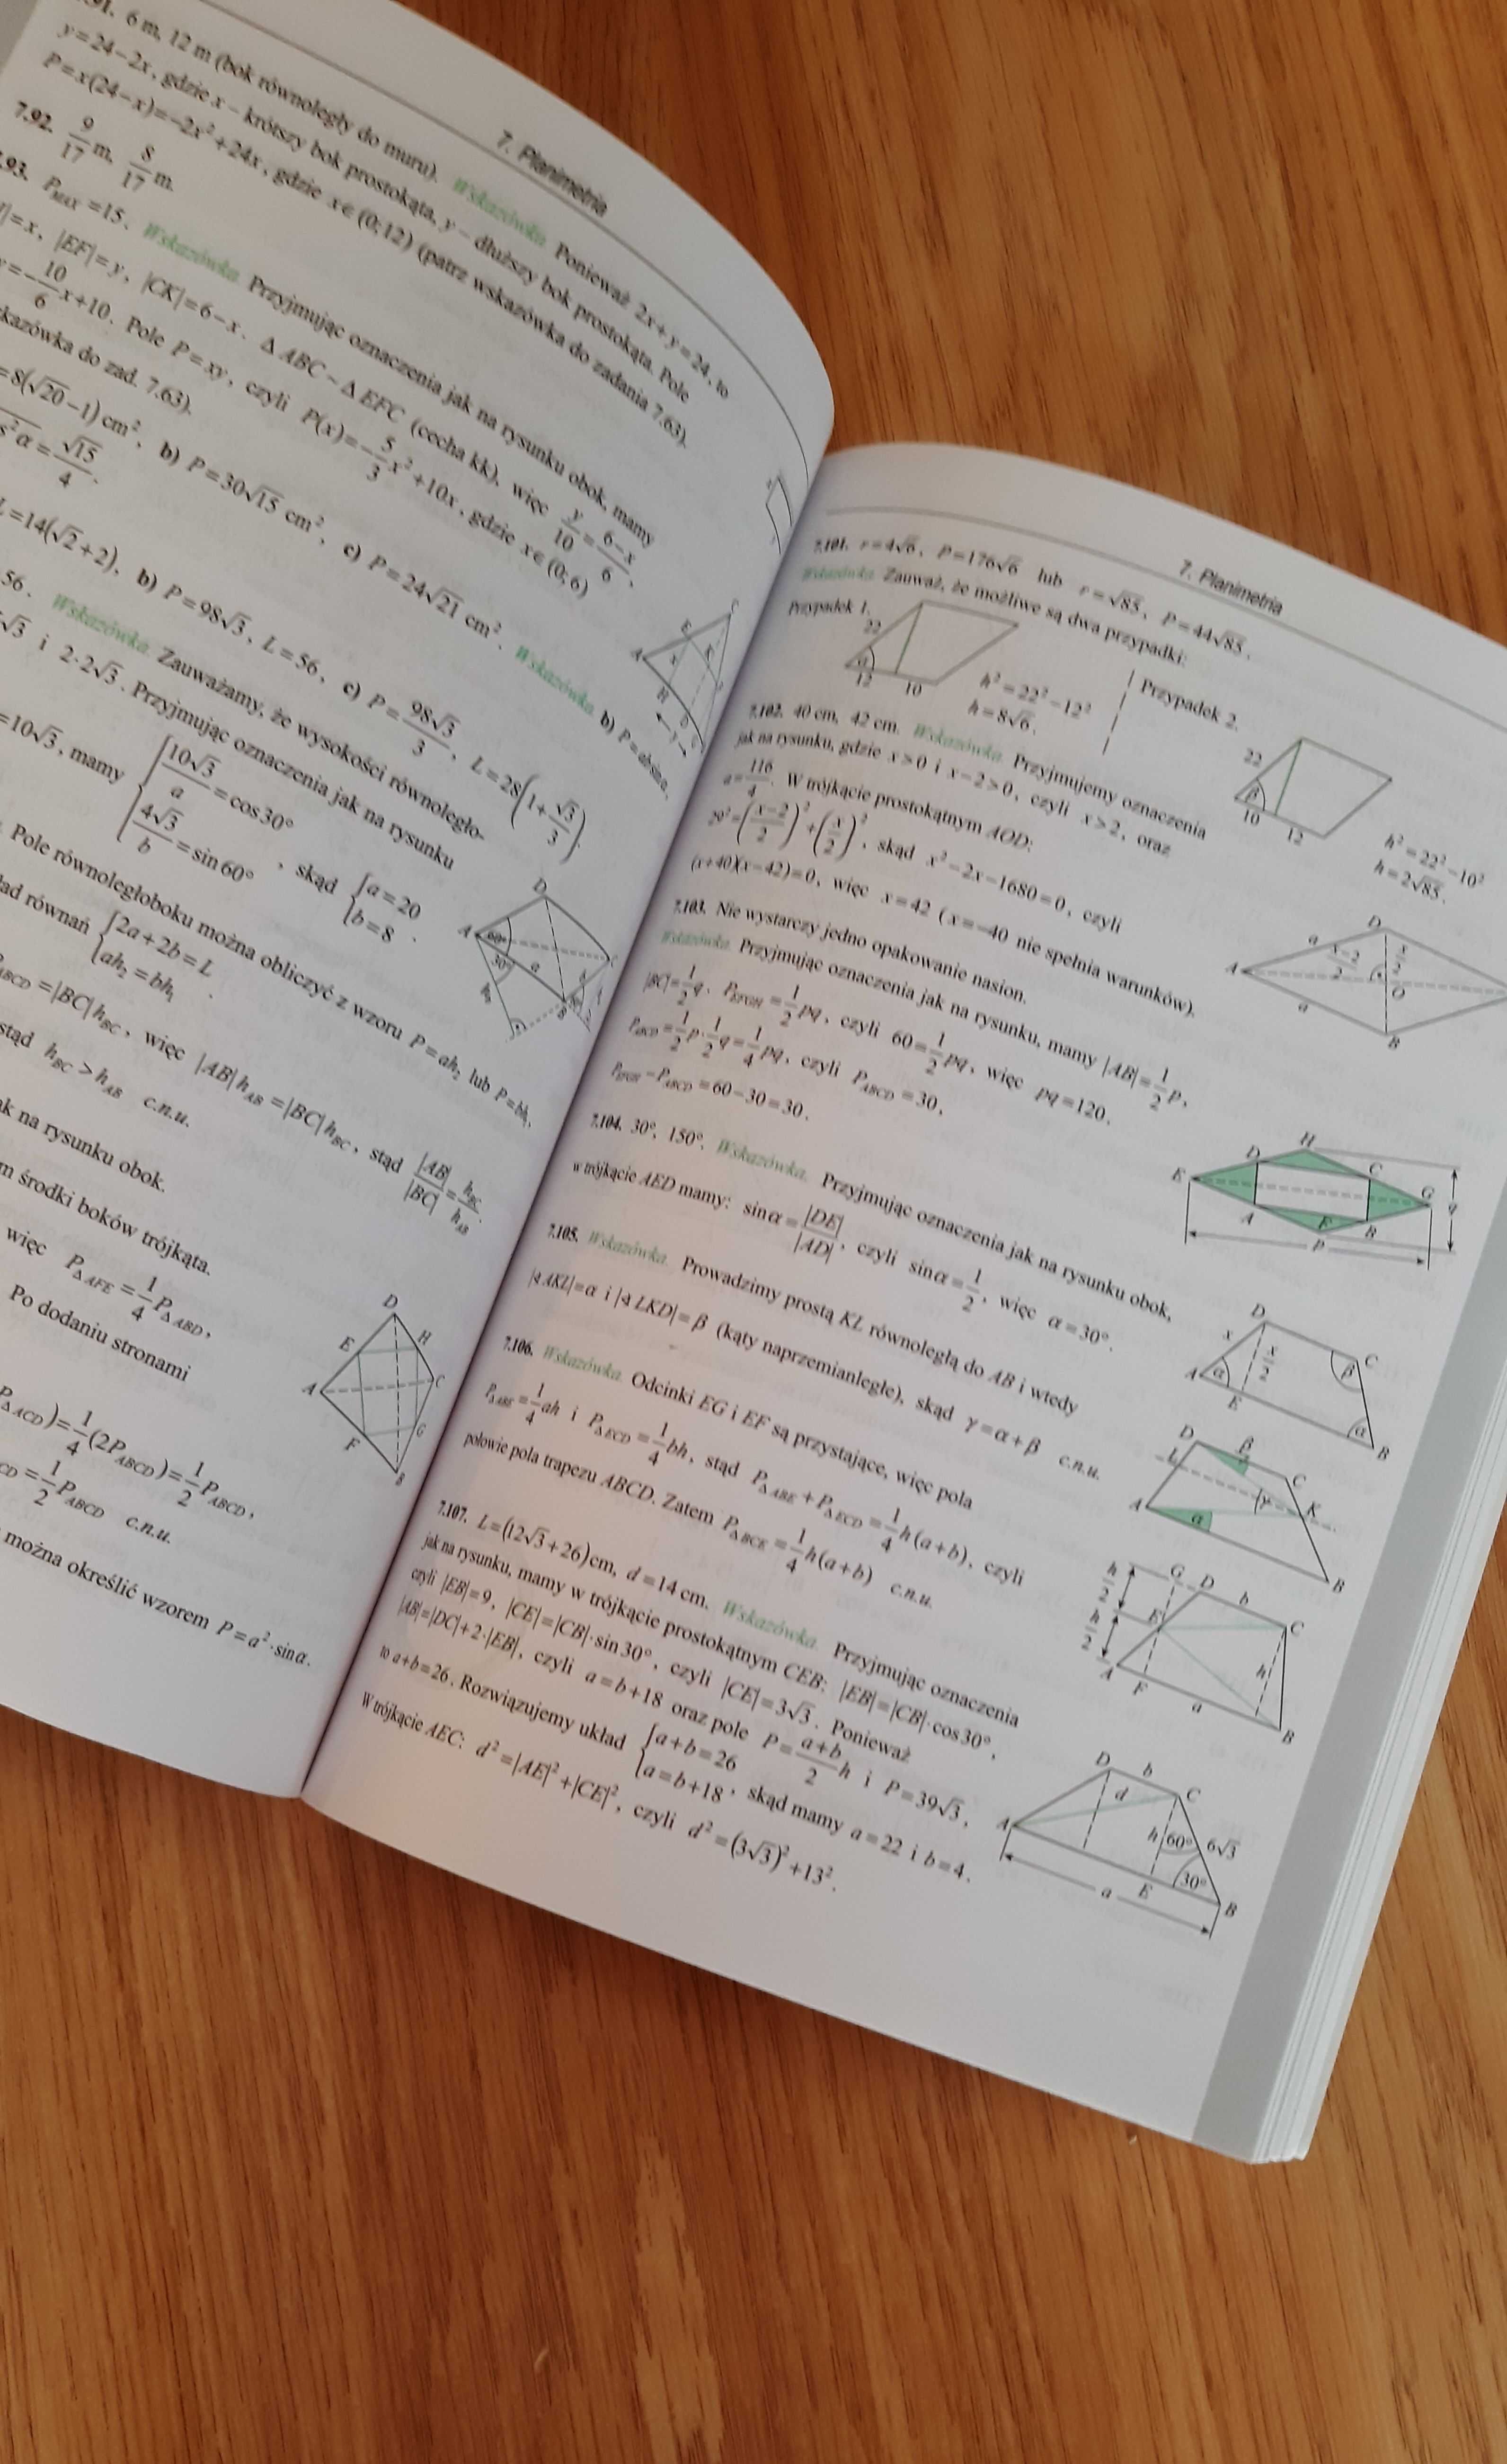 7. Planimetria
91. 6 m, 12 m (bok równoległy do muru). Wskazówka. Ponieważ 2x+y=24, to
y=24−2x, gdzie x – krótszy bok prostokąta, y – dłuższy bok prostokąta. Pole
P=x(24−x)=−2x²+24x, gdzie x∈(0;12) (patrz wskazówka do zadania 7.63).
7.92. 9/17 m, 8/17 m.
.93. P_MAX=15. Wskazówka. Przyjmując oznaczenia jak na rysunku obok, mamy
|=x, |EF|=y, |CK|=6−x. ΔABC~ΔEFC (cecha kk), więc y/10=(6−x)/6,
y=−10/6x+10. Pole P=xy, czyli P(x)=−5/3x²+10x, gdzie x∈(0;6)
kazówka do zad. 7.63).
=8(√20−1)cm², b) P=30√15 cm², c) P=24√21 cm². Wskazówka. b) P=absinα,
s²α=√15/4.
L=14(√2+2), b) P=98√3, L=56, c) P=98√3/3, L=28(1+√3/3).
56. Wskazówka. Zauważamy, że wysokości równoległo-
√3 i 2·2√3. Przyjmując oznaczenia jak na rysunku
=10√3, mamy {10√3/a=cos30°, 4√3/b=sin60°, skąd {a=20, b=8.
Pole równoległoboku można obliczyć z wzoru P=ah₂ lub P=bh₁
ład równań {2a+2b=L, ah₂=bh₁.
P_ABCD=|BC|h_BC, więc |AB|h_AB=|BC|h_BC, stąd |AB|/|BC|=h_BC/h_AB.
stąd h_BC>h_AB c.n.u.
ak na rysunku obok.
m środki boków trójkąta.
więc P_ΔAFE=1/4P_ΔABD,
Po dodaniu stronami
P_ΔACD)=1/4(2P_ABCD)=1/2P_ABCD,
CD=1/2P_ABCD c.n.u.
można określić wzorem P=a²·sinα.
7. Planimetria
7.101. r=4√6, P=176√6 lub r=√85, P=44√85.
Wskazówka. Zauważ, że możliwe są dwa przypadki:
Przypadek 1.
22
α
12 10
h²=22²−12²
h=8√6.
Przypadek 2.
22
β
10 12
h²=22²−10²
h=2√85.
7.102. 40 cm, 42 cm. Wskazówka. Przyjmujemy oznaczenia
jak na rysunku, gdzie x>0 i x−2>0, czyli x>2, oraz
a=116/4. W trójkącie prostokątnym AOD:
29²=((x−2)/2)²+(x/2)², skąd x²−2x−1680=0, czyli
(x+40)(x−42)=0, więc x=42 (x=−40 nie spełnia warunków).
7.103. Nie wystarczy jedno opakowanie nasion.
Wskazówka. Przyjmując oznaczenia jak na rysunku, mamy |AB|=1/2p,
|BC|=1/2q. P_EFGH=1/2pq, czyli 60=1/2pq, więc pq=120.
P_ABCD=1/2p·1/2q=1/4pq, czyli P_ABCD=30,
P_EFGH−P_ABCD=60−30=30.
7.104. 30°, 150°. Wskazówka. Przyjmując oznaczenia jak na rysunku obok,
w trójkącie AED mamy: sinα=|DE|/|AD|, czyli sinα=1/2, więc α=30°.
7.105. Wskazówka. Prowadzimy prostą KL równoległą do AB i wtedy
|∢AKL|=α i |∢LKD|=β (kąty naprzemianległe), skąd γ=α+β c.n.u.
7.106. Wskazówka. Odcinki EG i EF są przystające, więc pola
P_ΔABE=1/4ah i P_ΔECD=1/4bh, stąd P_ΔABE+P_ΔECD=1/4h(a+b), czyli
połowie pola trapezu ABCD. Zatem P_ΔBCE=1/4h(a+b) c.n.u.
7.107. L=(12√3+26)cm, d=14 cm. Wskazówka. Przyjmując oznaczenia
jak na rysunku, mamy w trójkącie prostokątnym CEB: |EB|=|CB|·cos30°,
czyli |EB|=9, |CE|=|CB|·sin30°, czyli |CE|=3√3. Ponieważ
|AB|=|DC|+2·|EB|, czyli a=b+18 oraz pole P=(a+b)/2 h i P=39√3,
to a+b=26. Rozwiązujemy układ {a+b=26, a=b+18, skąd mamy a=22 i b=4.
W trójkącie AEC: d²=|AE|²+|CE|², czyli d²=(3√3)²+13².